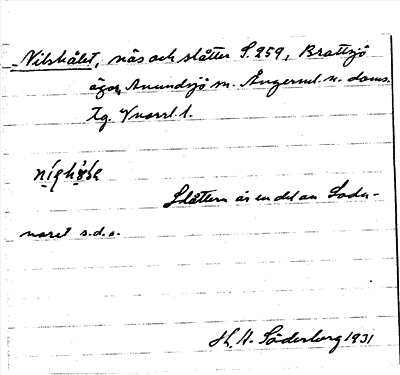 Vilshålet, näs och slåtter S.959, Brattsjö
ägor, Anundsjö sn. Ångerml. n. doms.
tg. Y norrl.
Slåttern är en del av Soder-
naret s.d.o.
Th. A. Söderborg 1931